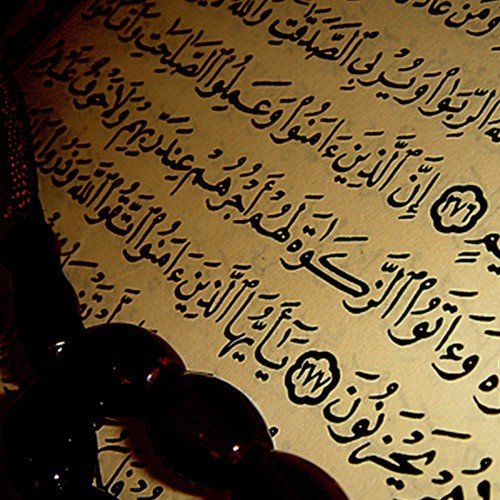 وَمَنْ عَادَ
ٱلرِّبَوٰا۟ وَيُرْبِى ٱلصَّدَقَٰتِ وَٱللَّهُ
٢٧٦ إِنَّ ٱلَّذِينَ ءَامَنُوا۟ وَعَمِلُوا۟ ٱلصَّٰلِحَٰتِ وَأَقَامُوا۟
وَءَاتَوُا۟ ٱلزَّكَوٰةَ لَهُمْ أَجْرُهُمْ عِندَ رَبِّهِمْ وَلَا خَوْفٌ
يَحْزَنُونَ ٢٧٧ يَٰٓأَيُّهَا ٱلَّذِينَ ءَامَنُوا۟ ٱتَّقُوا۟ ٱللَّهَ وَذَرُوا۟